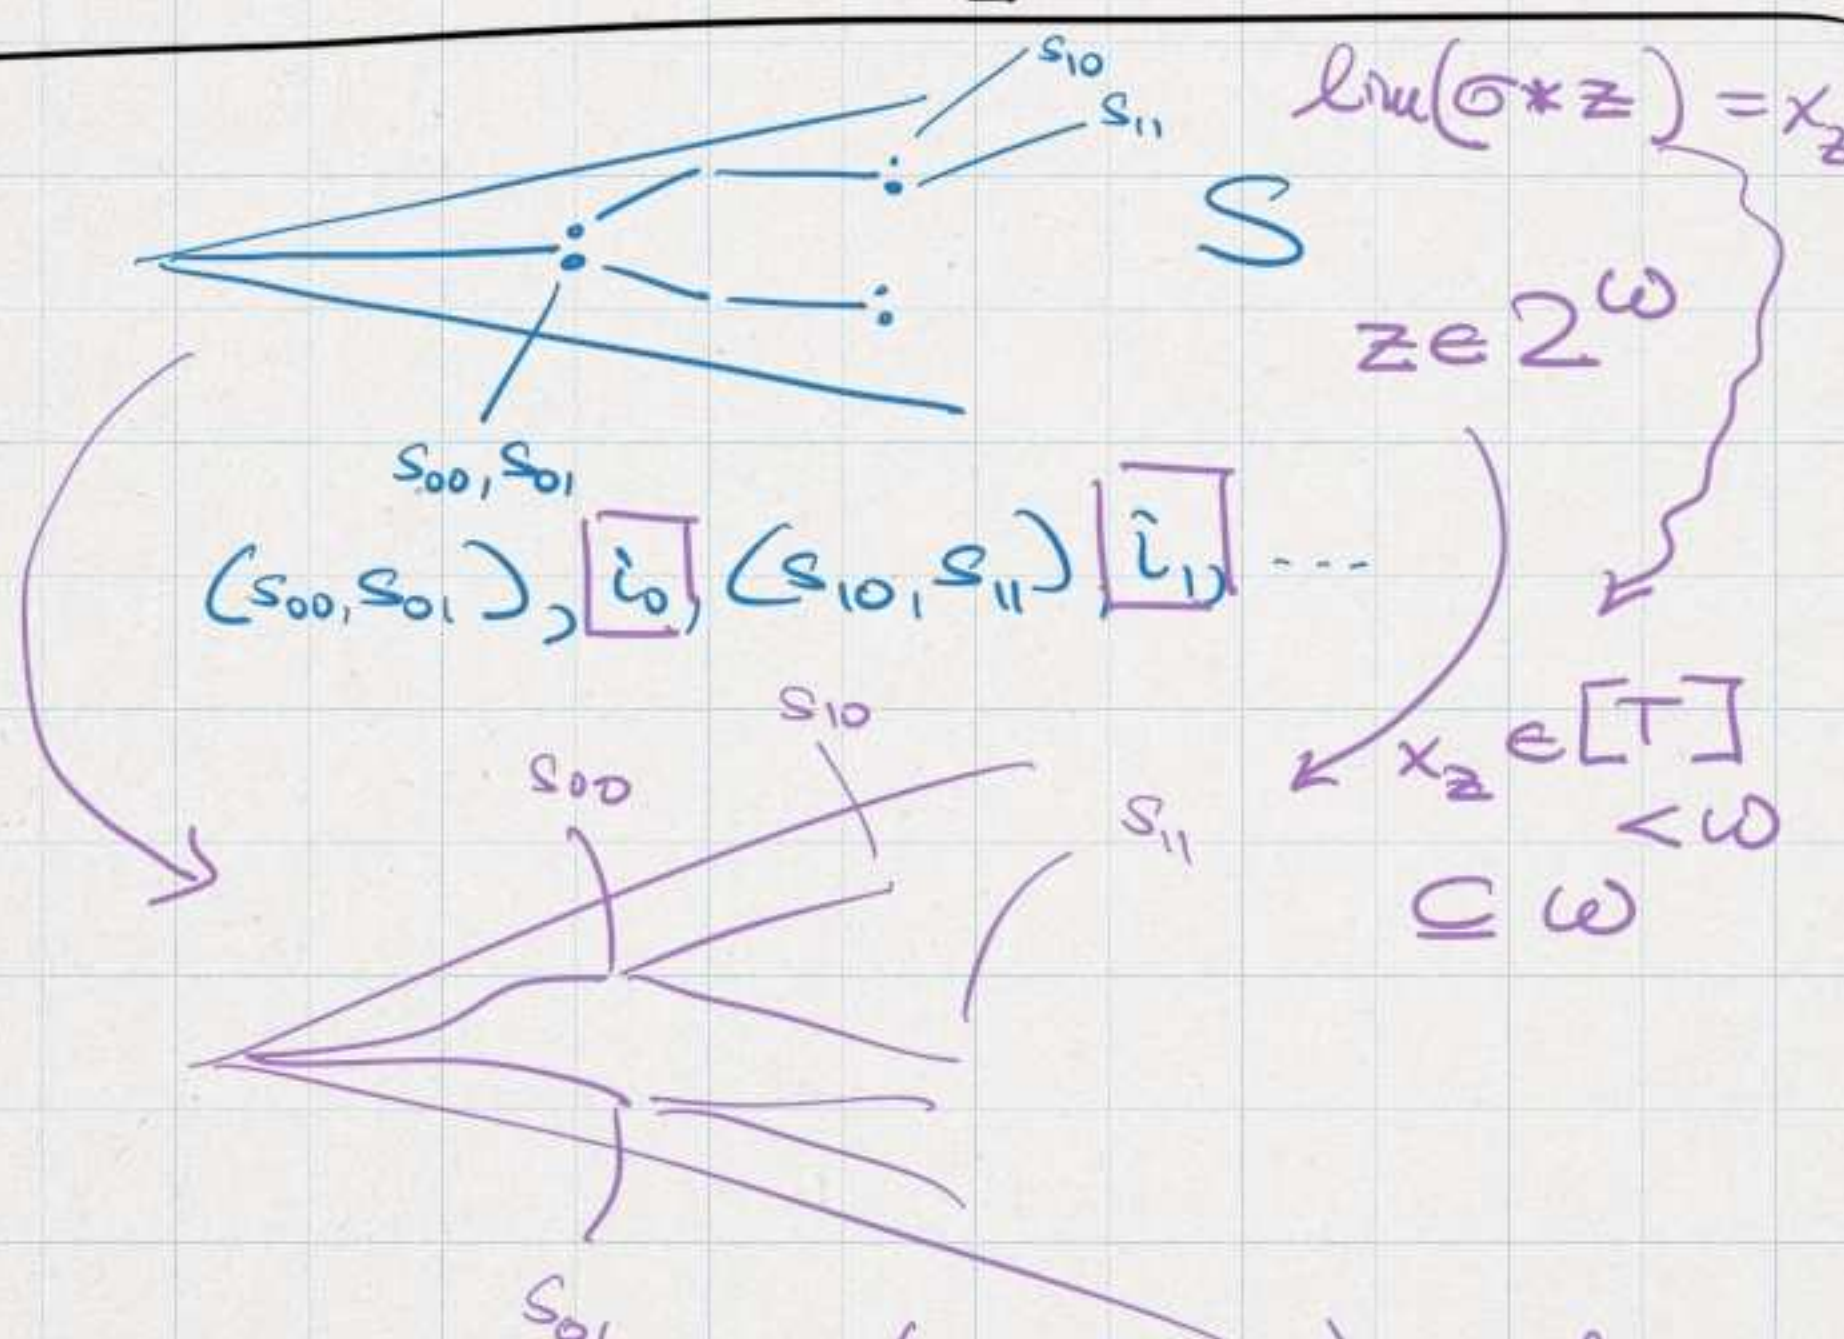 s₁₀
s₁₁
lim(σ*z) = x_z
S
z∈2^ω
s₀₀, s₀₁
(s₀₀, s₀₁), i₀, (s₁₀, s₁₁), i₁, ----
s₁₀
s₀₀
x_z ∈ [T]
s₁₁
⊆ ω^{<ω}
s₀₁